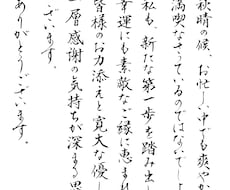 秋晴の候、お忙しい中でも爽やか
満喫なさっているのではないでし
私も、新たな第一歩を踏み出し
幸運にも素敵なご縁に恵まれ
皆様のお力添えと寛大な優し
層感謝の気持ちが深まる思
ございます。
ありがとうございます。